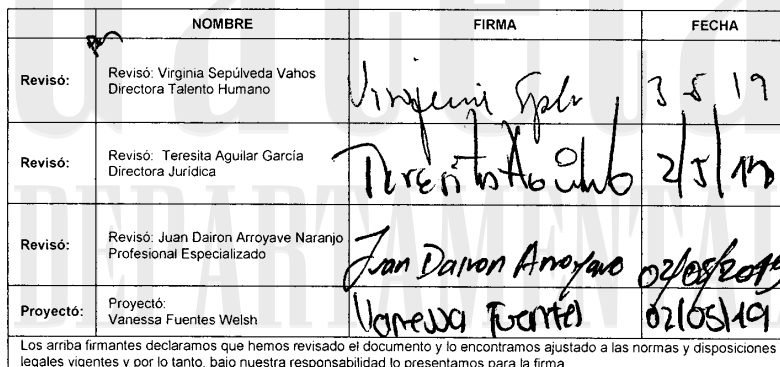 NOMBRE FIRMA FECHA
Revisó: Revisó: Virginia Sepúlveda Vahos
Directora Talento Humano
3 5 19
Revisó: Revisó: Teresita Aguilar García
Directora Jurídica
2/5/19
Revisó: Revisó: Juan Dairon Arroyave Naranjo
Profesional Especializado
Juan Dairon Arroyave 02/05/2019
Proyectó: Proyectó:
Vanessa Fuentes Welsh
Vanessa Fuentes 02/05/19
Los arriba firmantes declaramos que hemos revisado el documento y lo encontramos ajustado a las normas y disposiciones
legales vigentes y por lo tanto, bajo nuestra responsabilidad lo presentamos para la firma
DEPARTAMENTAL